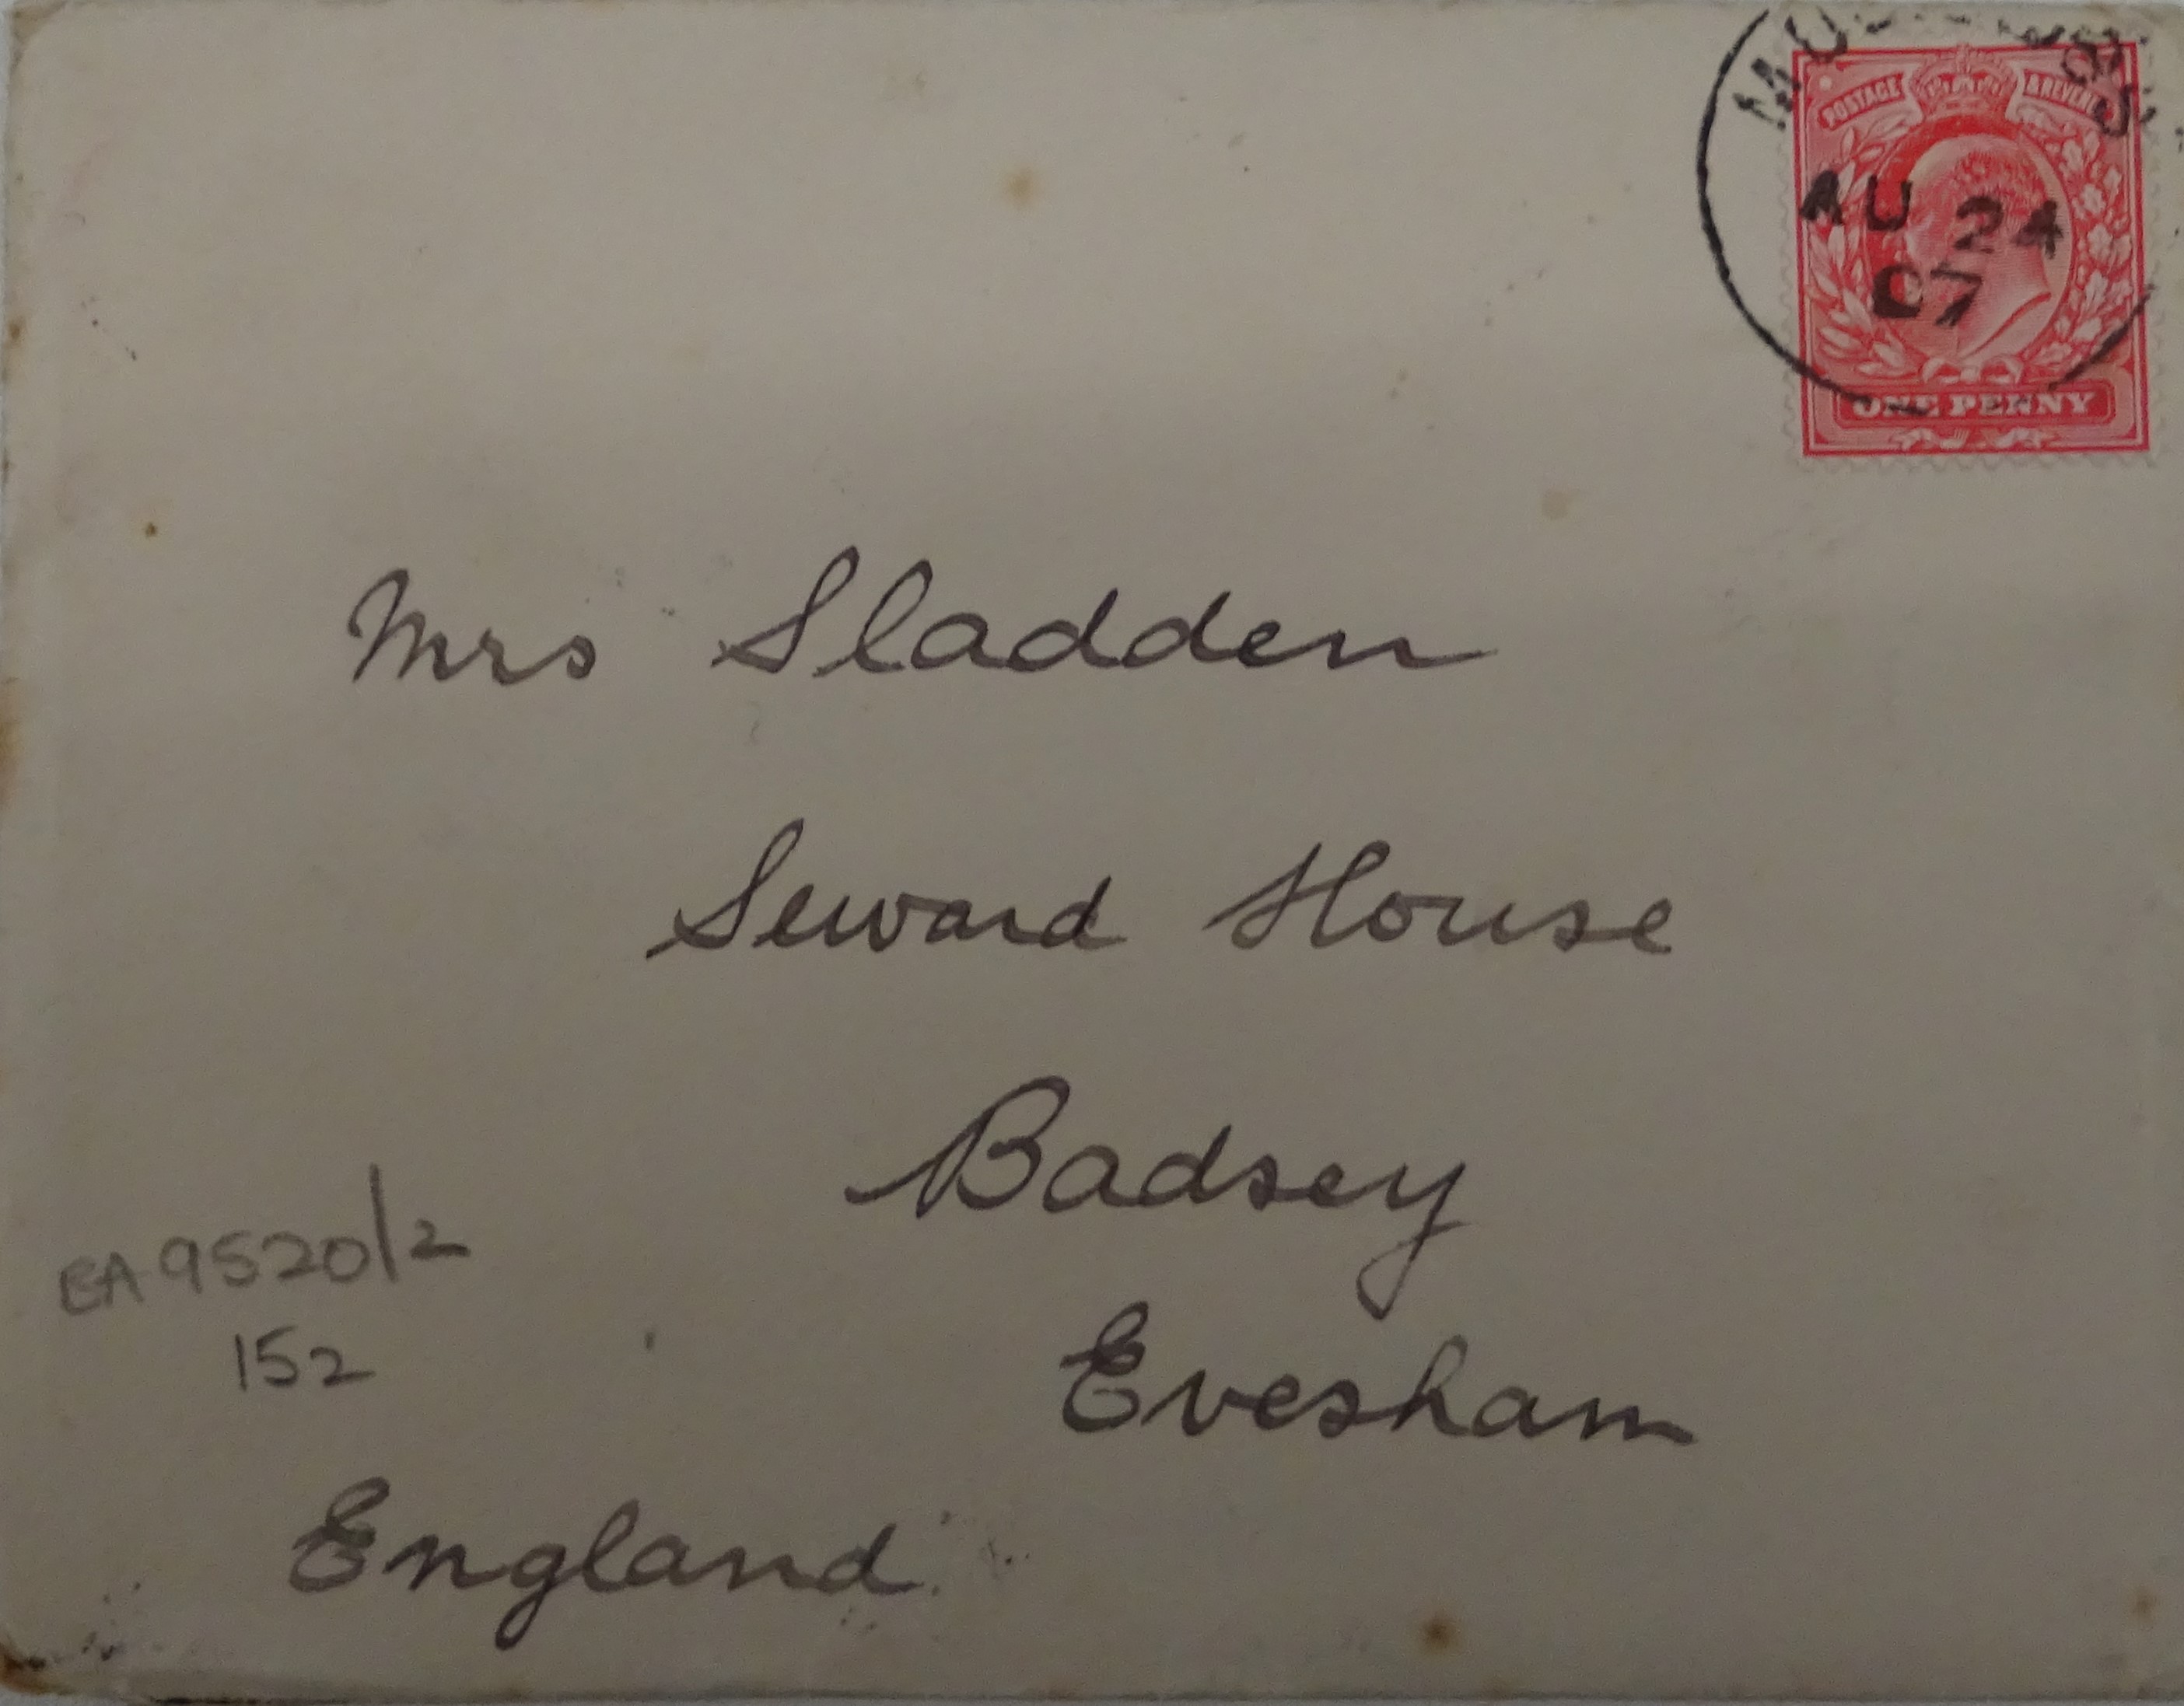 POSTAGE & REVENUE
AU 24
07
ONE PENNY
Mrs Sladden
Seward House
Badsey
Evesham
England
EA 9520/2
152